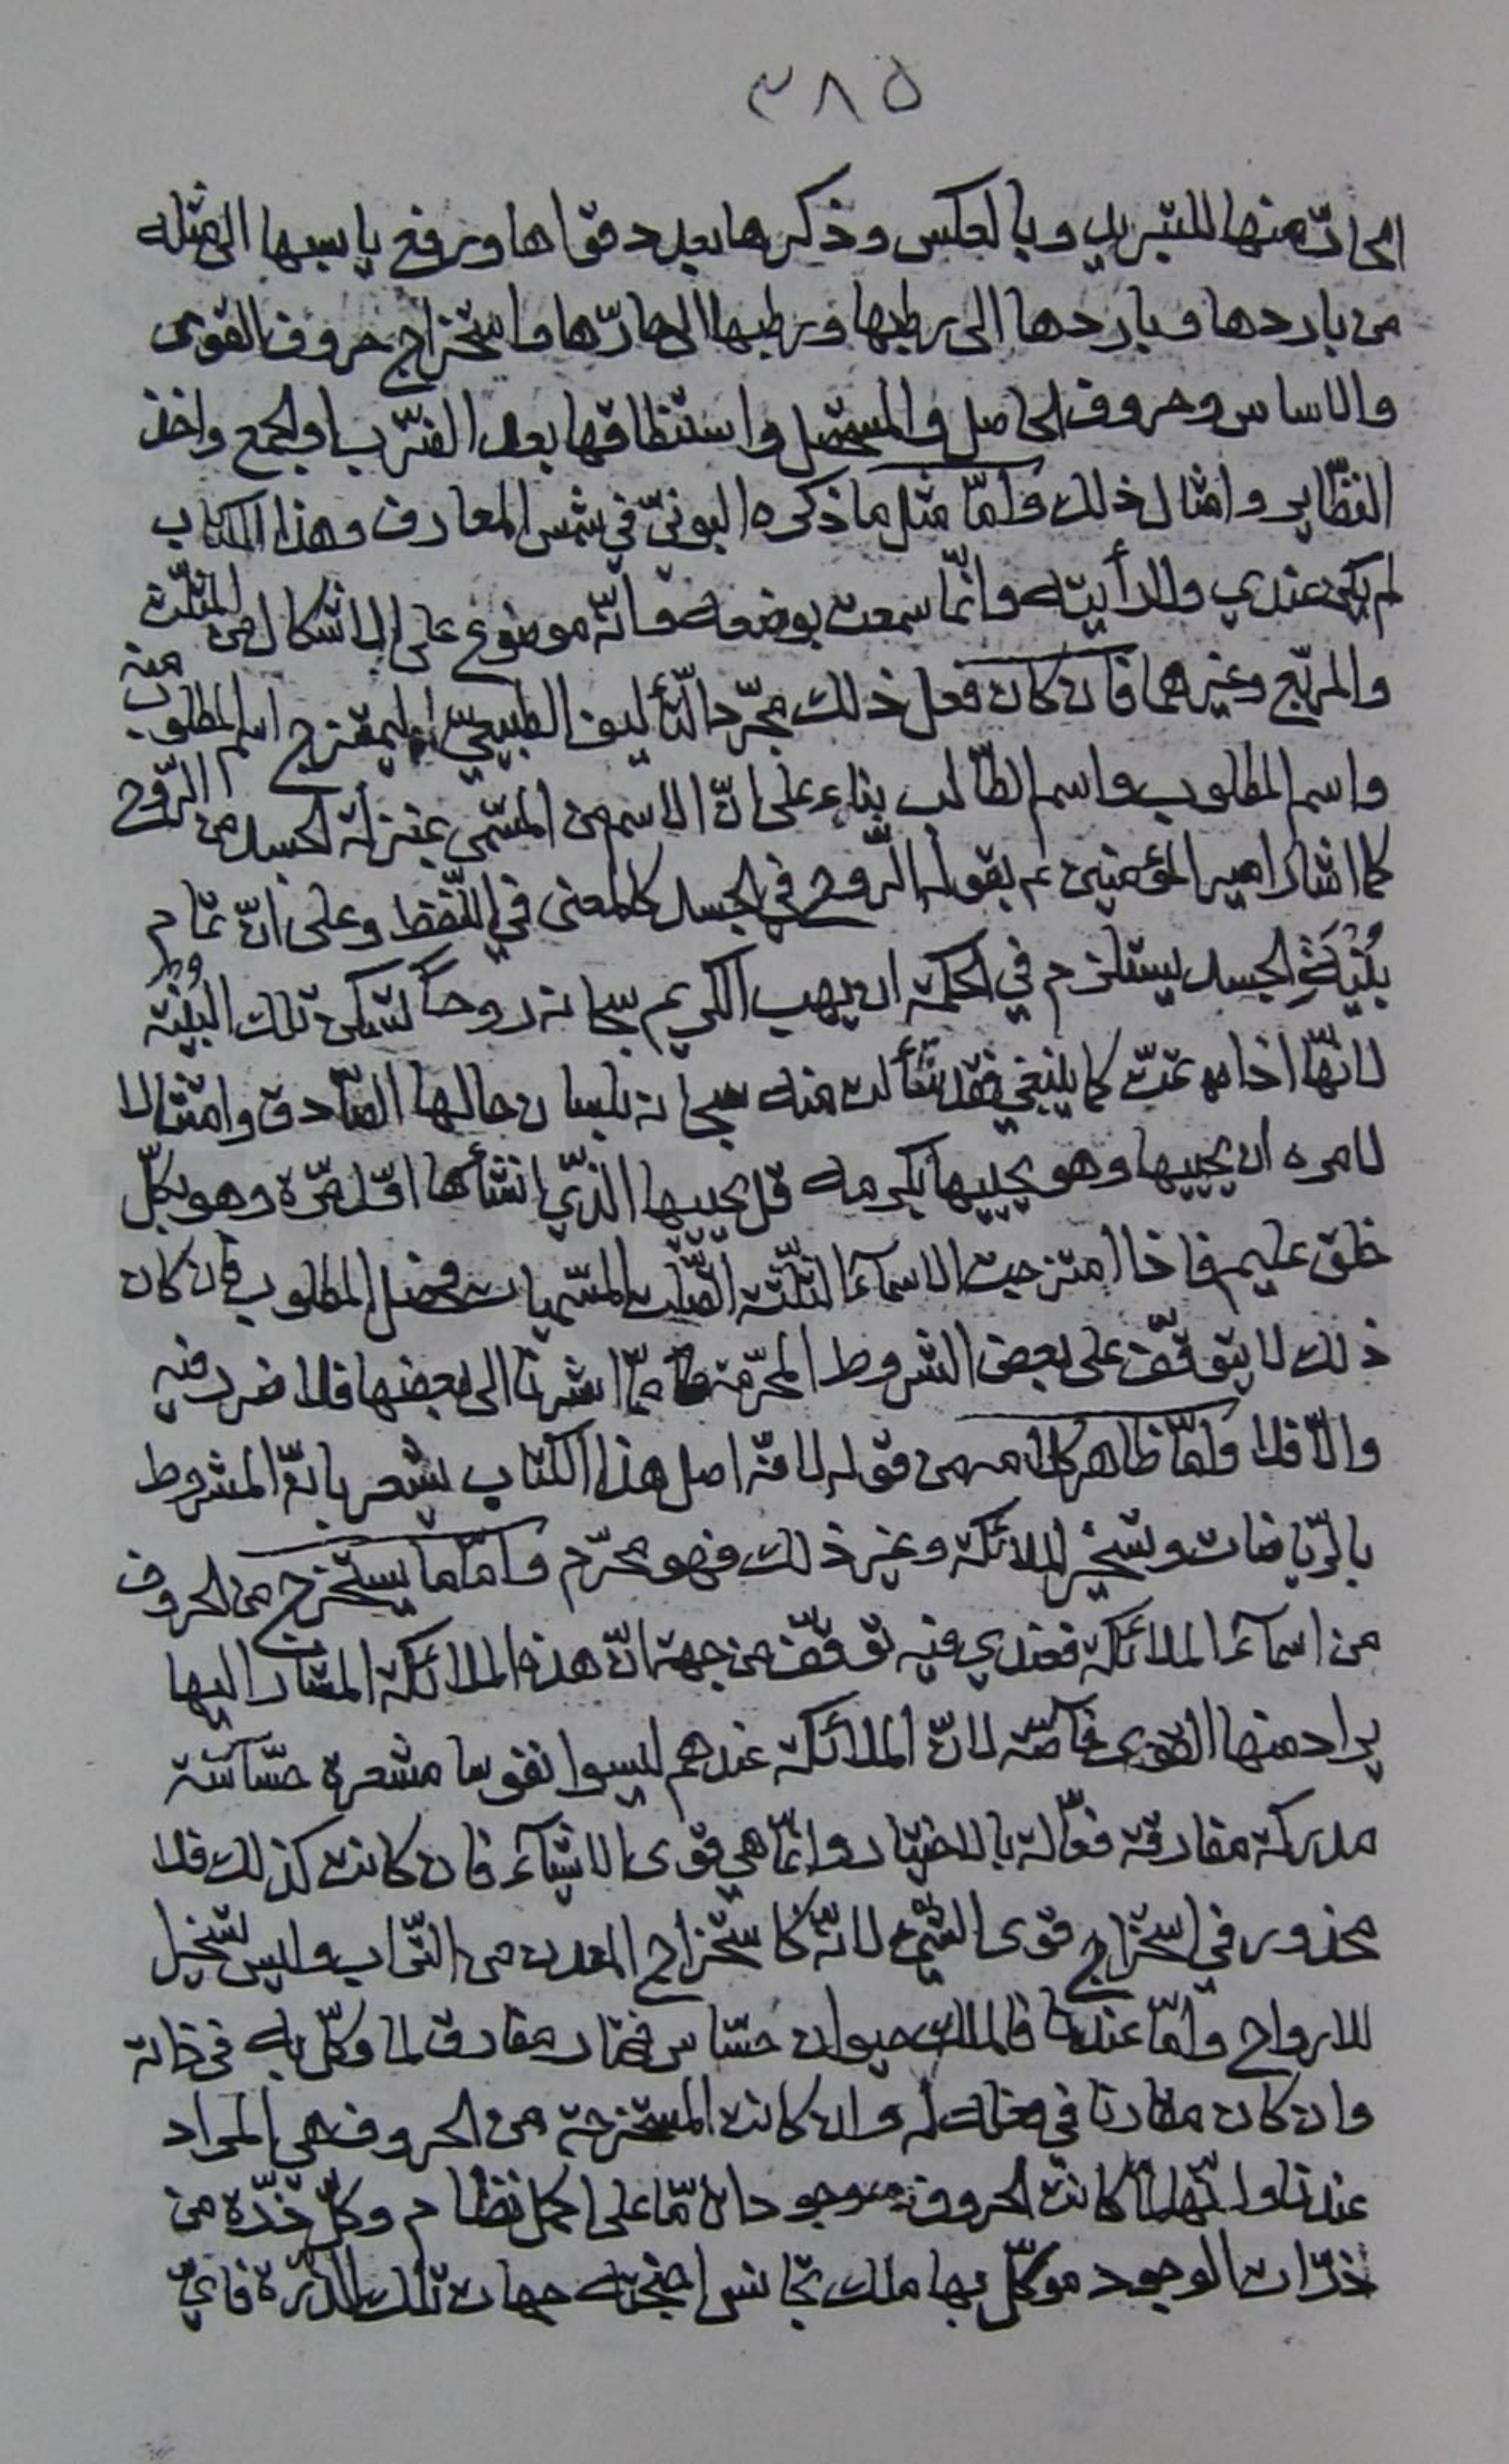 ٣٨٥
الحارّ منها للتبريد وبالعكس وذكرها بعدد قواها ورفع يابسها الى مثله
من باردها وباردها الى رطبها ورطبها الى حارّها واستخراج حروف القوى
والاساس وحروف الحاصل والمستحصل واستنطاقها بعد الضّرب او الجمع واخذ
النظّاير وامثال ذلك وامّا مثل ما ذكره البونيّ في شمس المعارف وهذا الكتاب
لم يكن عندي ولا رأيته وانّما سمعت بوضعه وانّه موضوع على الاشكال من المثلّث
والمربّع وغيرهما فان كان فعل ذلك مجرّد التّأليف الطبيعيّ ليمتزج اسم المطلوب منه
واسم المطلوب واسم الطّالب بناء على انّ الاسم من المسّمى بمنزلة الجسد من الرّوح
كما اشار امير المؤمنين ع بقوله الرّوح في الجسد كالمعنى في اللّفظ وعلى انّ تمام
بُنْيَةِ الجسد يستلزم في الحكمة ان يهب الكريم سبحانه روحاً لتسكن تلك البُنْيَة
لانّها اذا تمّت كما ينبغي فقد سَأَلت منه سبحانه بلسان حالها الصّادق وامتثالا
لامره ان يحييها وهو يحييها بكرمه قل يحييها الّذي انشأها اوّل مرّة وهو بكلّ
خلق عليم فاذا امتزجت الاسمآء الثلثة اتّصلت المسّميات وحصل المطلوب فان كان
ذلك لا يتوقّف على بعض الشروط المحرّمة ممّا اشرنا الى بعضها فلا ضرر فيه
والّا فلا وامّا ظاهر كلامهم من قوله لانّه اصل هذا الكتاب يشعر بانّه المشروط
بالرّياضات وتسخير الملائكة وغير ذلك فهو محرّم وامّا ما يستخرج من الحروف
من اسمآء الملائكة فعندي فيه توقّف من جهة انّ هذه الملائكة المشار اليها
يراد منها القوى خاصّة لانّ الملائكة عندهم ليسوا نفوسا مشعرة حسّاسة
مدركة مفارقة فعّالة بالاختيار وانّما هي قوى الاشيآء فان كانت كذلك فلا
محذور في استخراج قوى الشيء لانّه كاستخراج المعدن من التّراب وليس تسخيرا
للارواح وامّا عندنا فالملك حيوان حسّاس مختار مفارق لما وكّل به في ذاته
وان كان مقارنا في فعله له وان كانت المستخرجة من الحروف هي المراد
عندنا وانّها لمّا كانت الحروف موجودا تامّا على اكمل نظام وكلّ ذرّة من
ذرّات الوجود موكّل بها ملك تجانس اجنحته جهات تلك الذّرّة فايّ